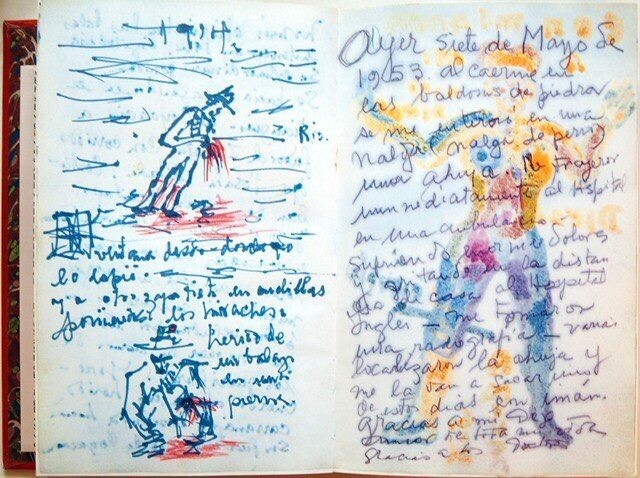 1914.
ventana desde donde yo
lo espié.
y a otro zapatista en cuclillas
poniéndose los huaraches.
herido de
un balazo
en una
pierna.
Ayer siete de Mayo de
1953 al caerme en
las baldosas de piedra
se me enterró en una
nalga nalga de perro
una ahuja. Me trajeron
inmediatamente al Hospital
en una ambulancia.
sufriendo horribles dolores
y gritando en la distan
cia de casa al Hospital
Ingles – me tomaron
una radiografía – varias
localizaron la ahuja y
me la van a sacar uno
de estos dias con imán.
gracias a mi Diego
amor de toda mi vida
gracias a los Doctores